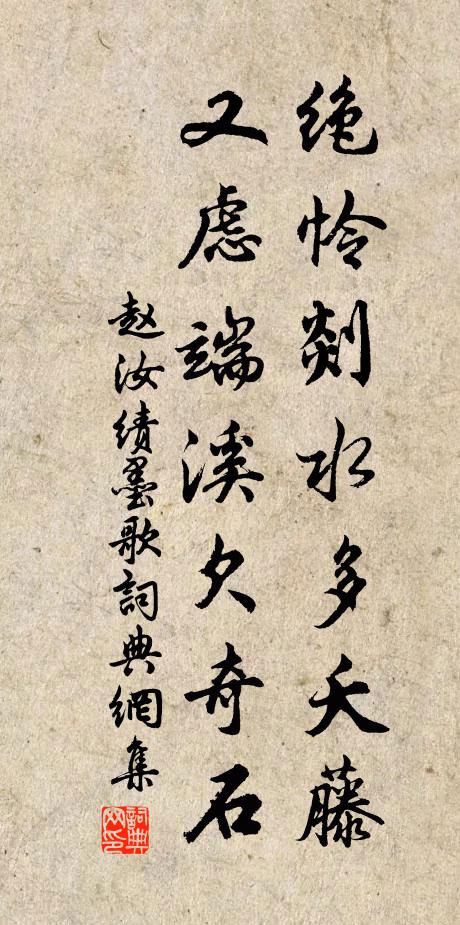 绝怜剡水多夭藤
又虑端溪欠奇石
赵汝绩墨歌詞典網集
詞典网印